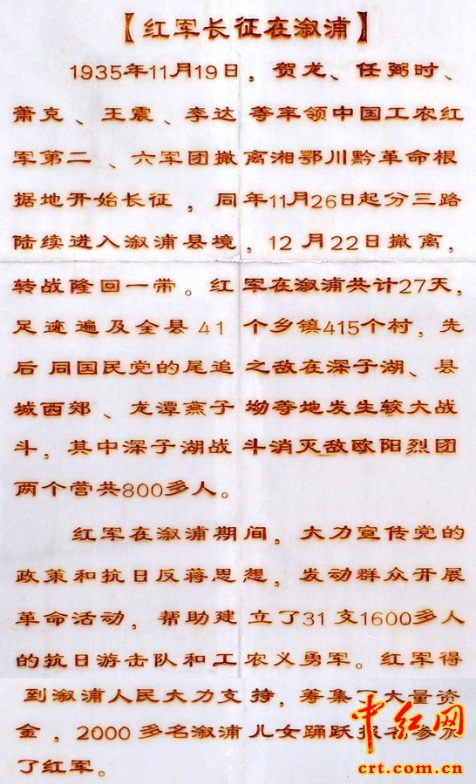 【红军长征在溆浦】
1935年11月19日，贺龙、任弼时、
萧克、王震、李达等率领中国工农红
军第二、六军团撤离湘鄂川黔革命根
据地开始长征，同年11月26日起分三路
陆续进入溆浦县境，12月22日撤离，
转战隆回一带。红军在溆浦共计27天，
足迹遍及全县41个乡镇415个村，先
后同国民党的尾追之敌在深子湖、县
城西郊、龙潭燕子坳等地发生较大战
斗，其中深子湖战斗消灭敌欧阳烈团
两个营共800多人。
红军在溆浦期间，大力宣传党的
政策和抗日反蒋思想，发动群众开展
革命活动，帮助建立了31支1600多人
的抗日游击队和工农义勇军。红军得
到溆浦人民大力支持，筹集了大量资
金，2000多名溆浦儿女踊跃报名参加
了红军。
中红网
crt.com.cn